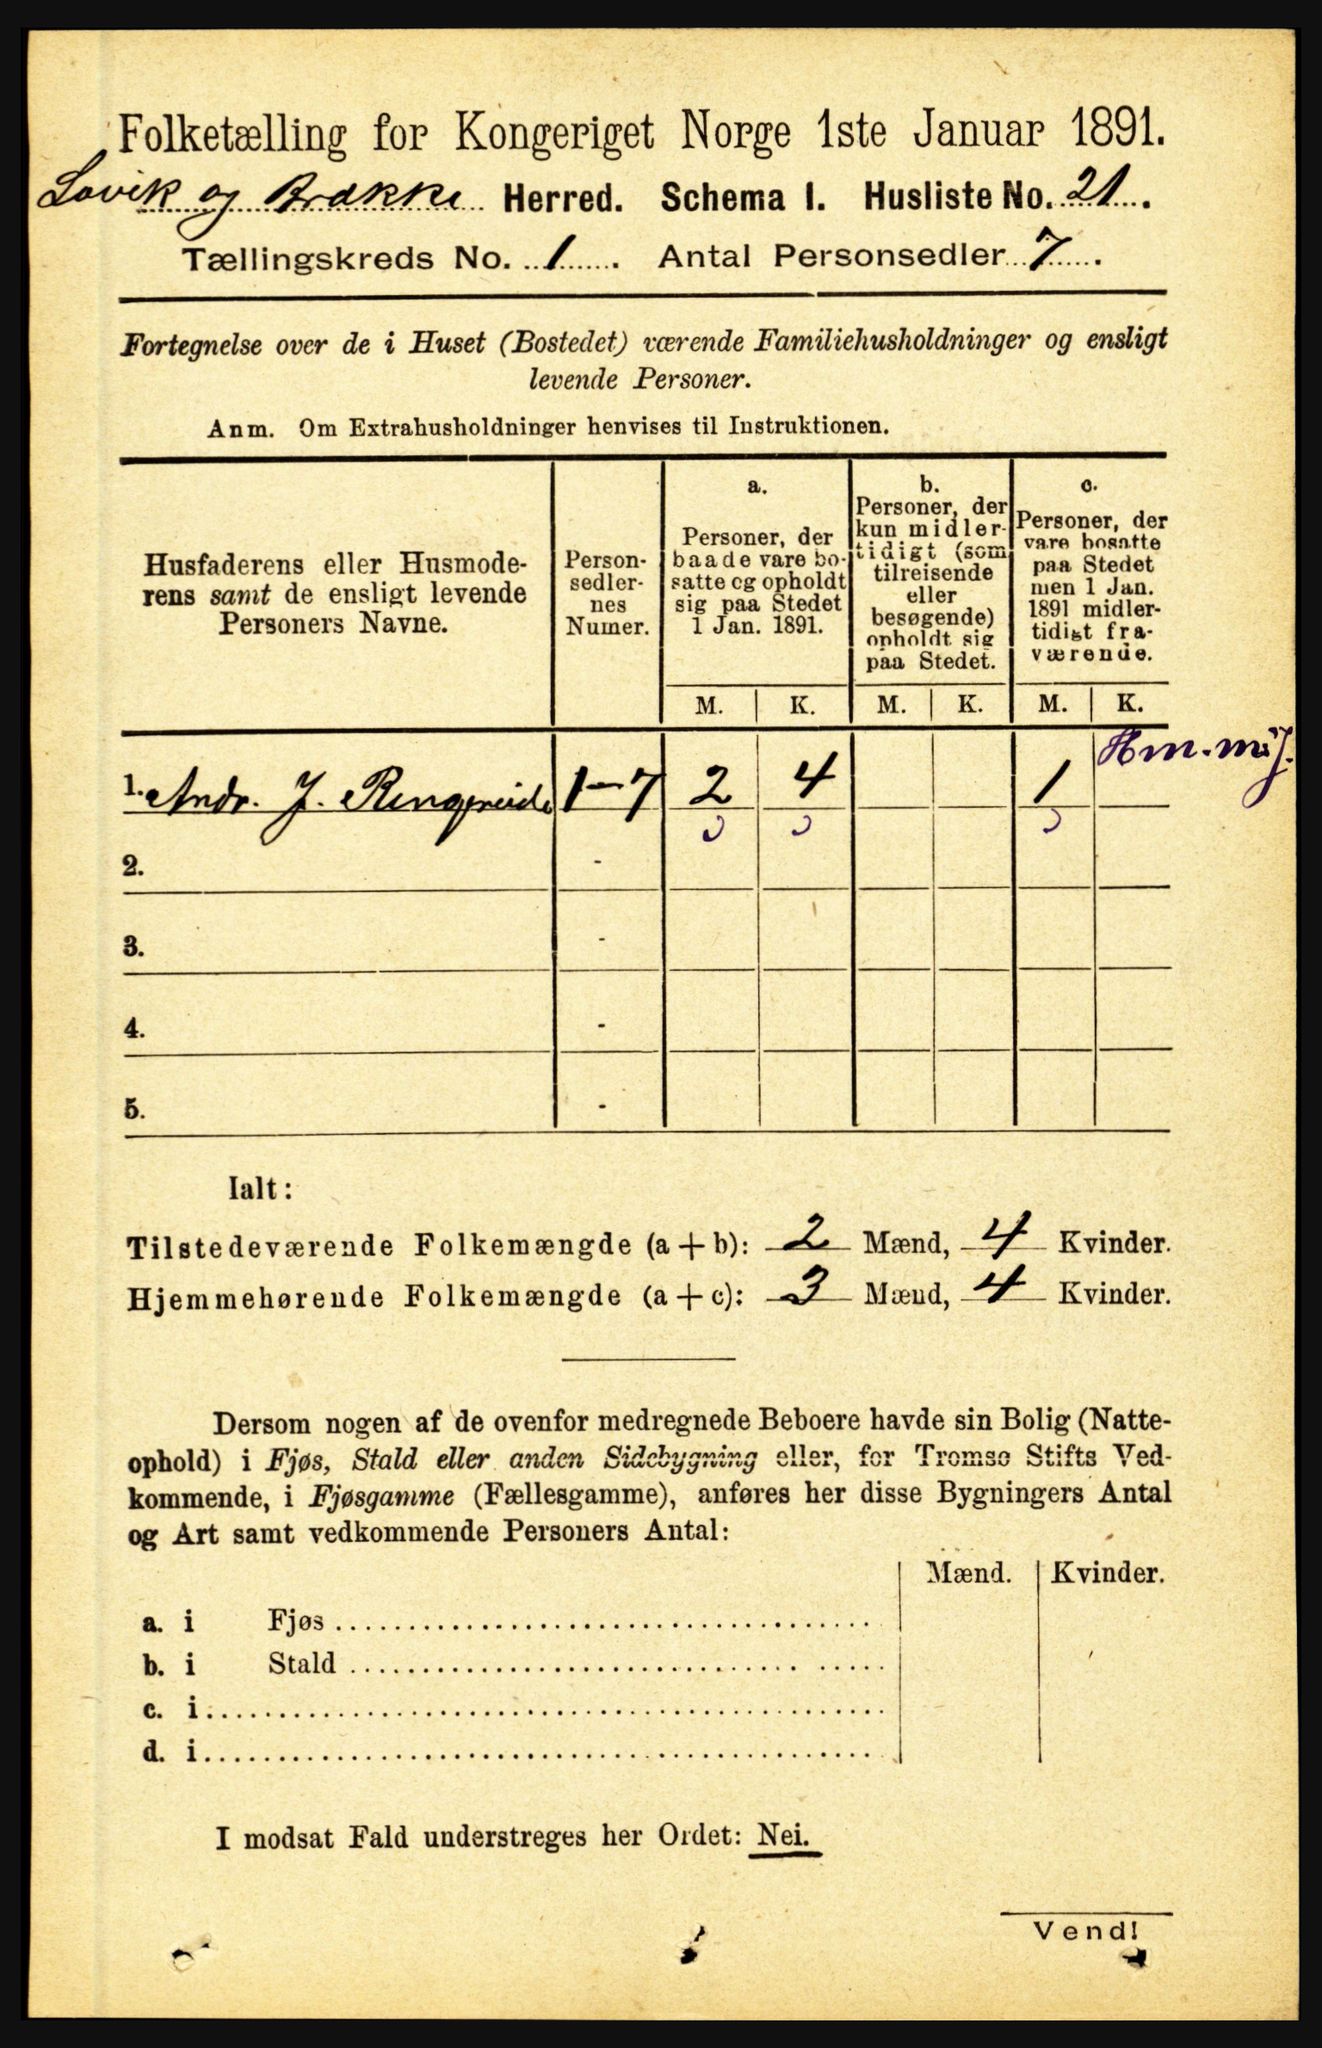 Folketælling for Kongeriget Norge 1ste Januar 1891.
Lavik og Brække Herred. Schema I. Husliste No. 21.
Tællingskreds No. 1. Antal Personsedler 7.
Fortegnelse over de i Huset (Bostedet) værende Familiehusholdninger og ensligt
levende Personer.
Anm. Om Extrahusholdninger henvises til Instruktionen.
Husfaderens eller Husmode-
rens samt de ensligt levende
Personers Navne.
Person-
sedler-
nes
Numer.
a.
Personer, der
baade vare bo-
satte og opholdt
sig paa Stedet
1 Jan. 1891.
b.
Personer, der
kun midler-
tidigt (som
tilreisende
eller
besøgende)
opholdt sig
paa Stedet.
c.
Personer, der
vare bosatte
paa Stedet
men 1 Jan.
1891 midler-
tidigt fra-
værende.
M. K. M. K. M. K.
1. Andr. J. Ringereide 1-7 2 4 1
2. -
3. -
4. -
5. -
Ialt:
Tilstedeværende Folkemængde (a + b): 2 Mænd, 4 Kvinder.
Hjemmehørende Folkemængde (a + c): 3 Mænd, 4 Kvinder.
Dersom nogen af de ovenfor medregnede Beboere havde sin Bolig (Natte-
ophold) i Fjøs, Stald eller anden Sidebygning eller, for Tromsø Stifts Ved-
kommende, i Fjøsgamme (Fællesgamme), anføres her disse Bygningers Antal
og Art samt vedkommende Personers Antal:
Mænd. Kvinder.
a. i Fjøs
b. i Stald
c. i
d. i
I modsat Fald understreges her Ordet: Nei.
Vend!